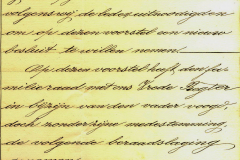 volgens wij, de beden uitnoodigden
om op dezen voorstel een nieuw
besluit te willen nemen.
Op dezen voorstel heeft den fa-
milieraad, met ons Vrede Regter
in bijzijn van den vader voogd
doch zonder zijne medestemming
de volgende beraadslaging
genomen